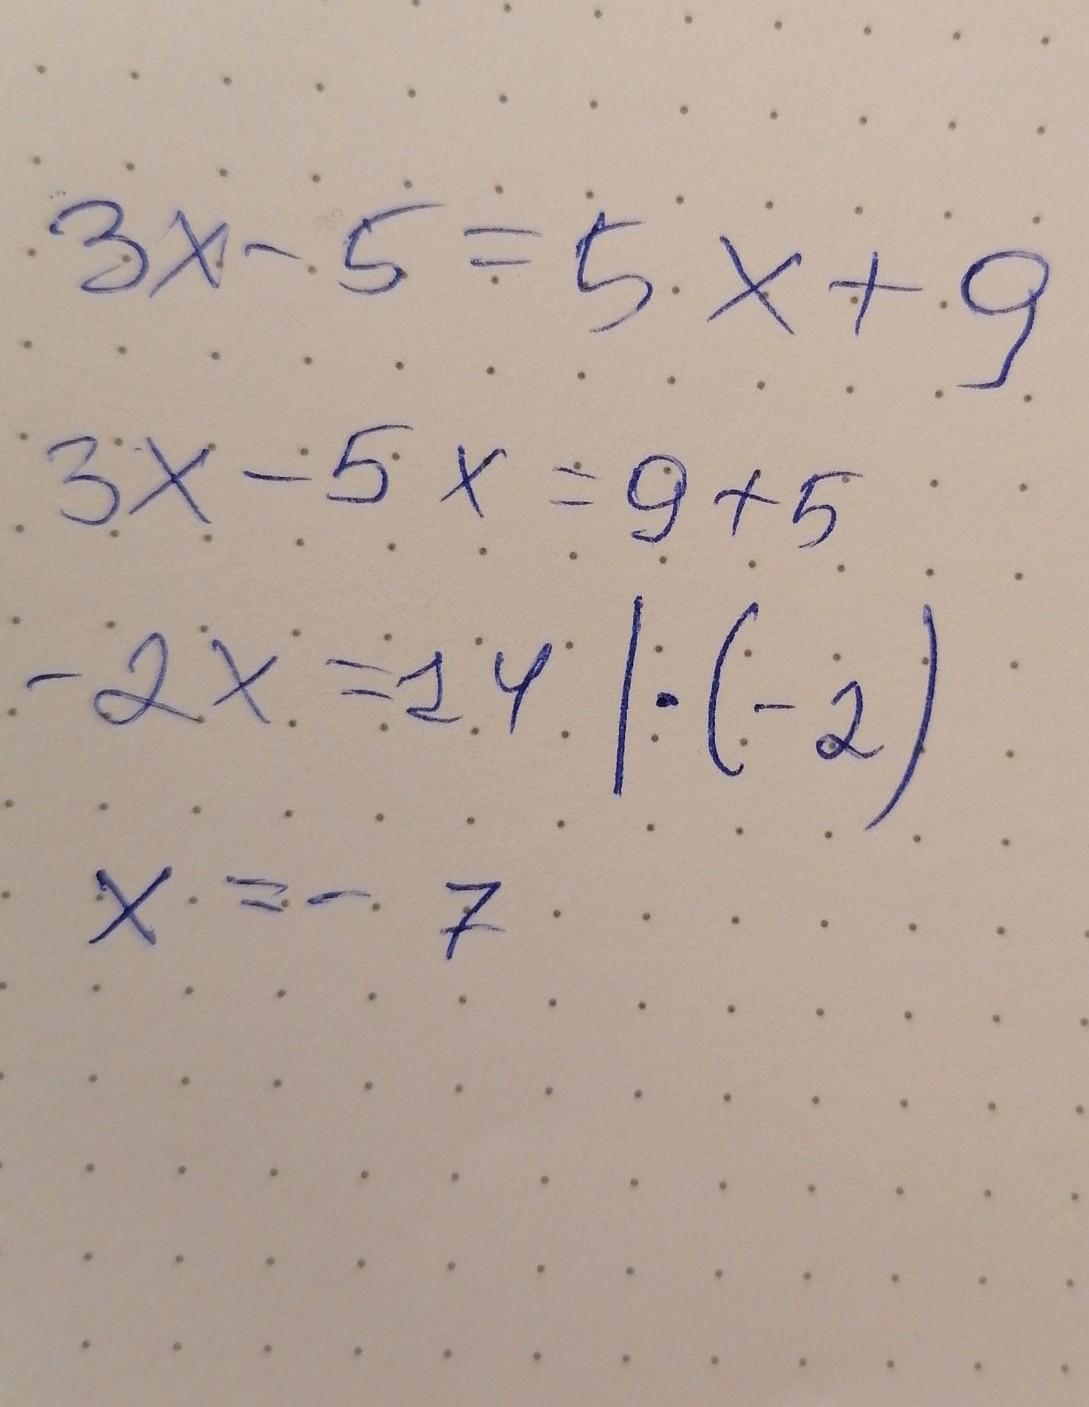 3x - 5 = 5x + 9
3x - 5x = 9 + 5
-2x = 14 | · (-2)
x = -7